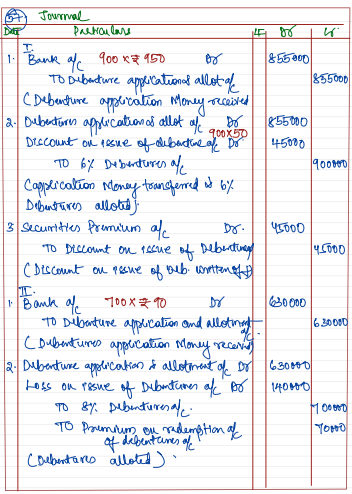 57 Journal
Date Particulars L Dr Cr
I.
1. Bank a/c 900 x ₹ 950 Dr 855000
To Debenture application & allot a/c 855000
(Debenture application Money received
2. Debentures application & allot a/c Dr 855000
900x50
Discount on issue of debenture a/c Dr 45000
To 6% Debentures a/c 900000
(application Money transferred is 6%
Debentures alloted).
3 Securities Premium a/c Dr. 45000
To Discount on issue of Debenture 45000
(Discount on issue of Deb. written off)
II.
1. Bank a/c 700 x ₹ 90 Dr 630000
To Debenture application and allotment a/c 630000
(Debentures application Money received)
2. Debenture application & allotment a/c Dr 630000
Loss on issue of Debentures a/c Dr 140000
To 8% Debentures a/c. 700000
To Premium on redemption of debentures a/c 70000
(Debentures alloted).